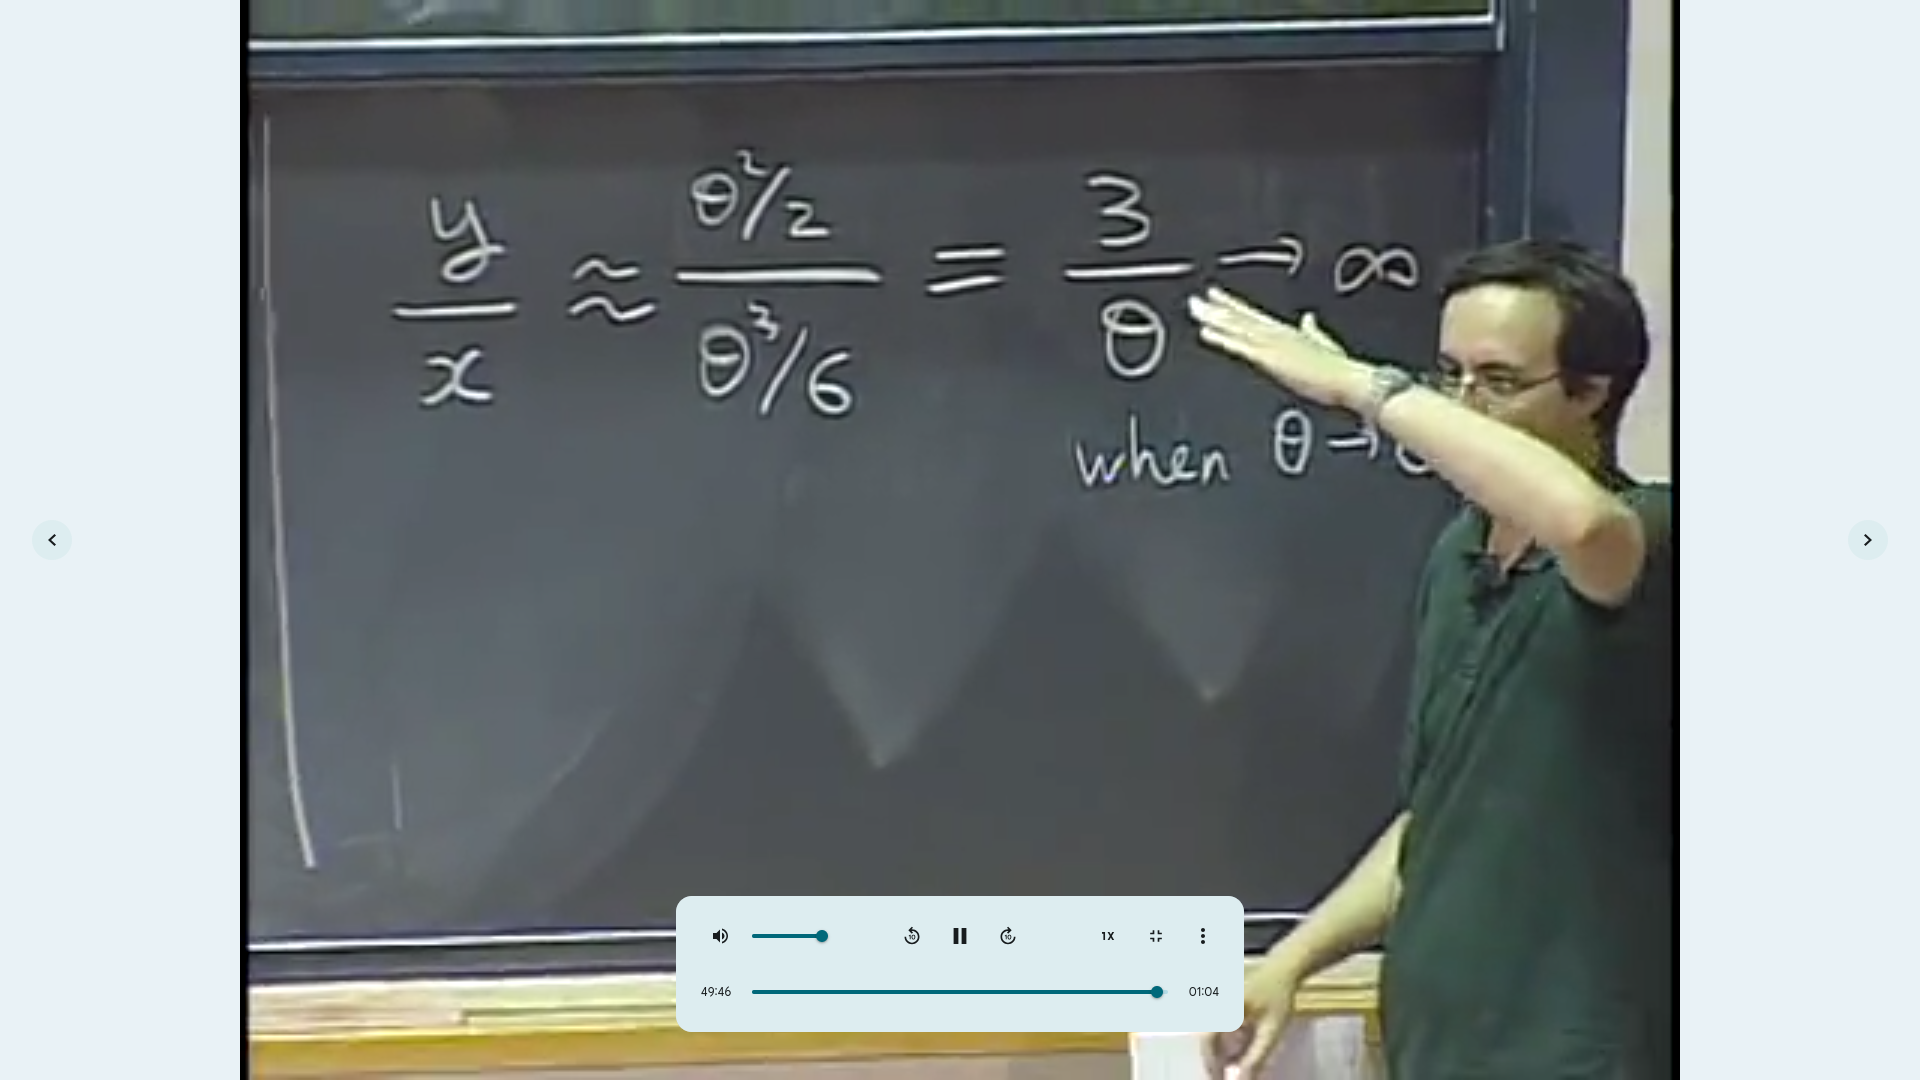 y/x ≈ (θ²/2)/(θ³/6) = 3/θ → ∞
when θ →
1X
49:46
01:04